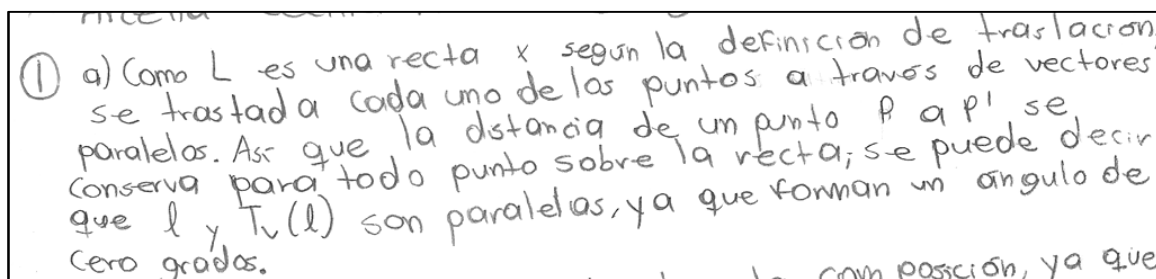 ① a) Como L es una recta x segun la definición de traslación
se trastada cada uno de los puntos a traves de vectores
paralelos. Asi que la distancia de un punto P a P' se
conserva para todo punto sobre la recta; se puede decir
que l y Tv(l) son paralelas, ya que forman un angulo de
cero grados.
composición, ya que